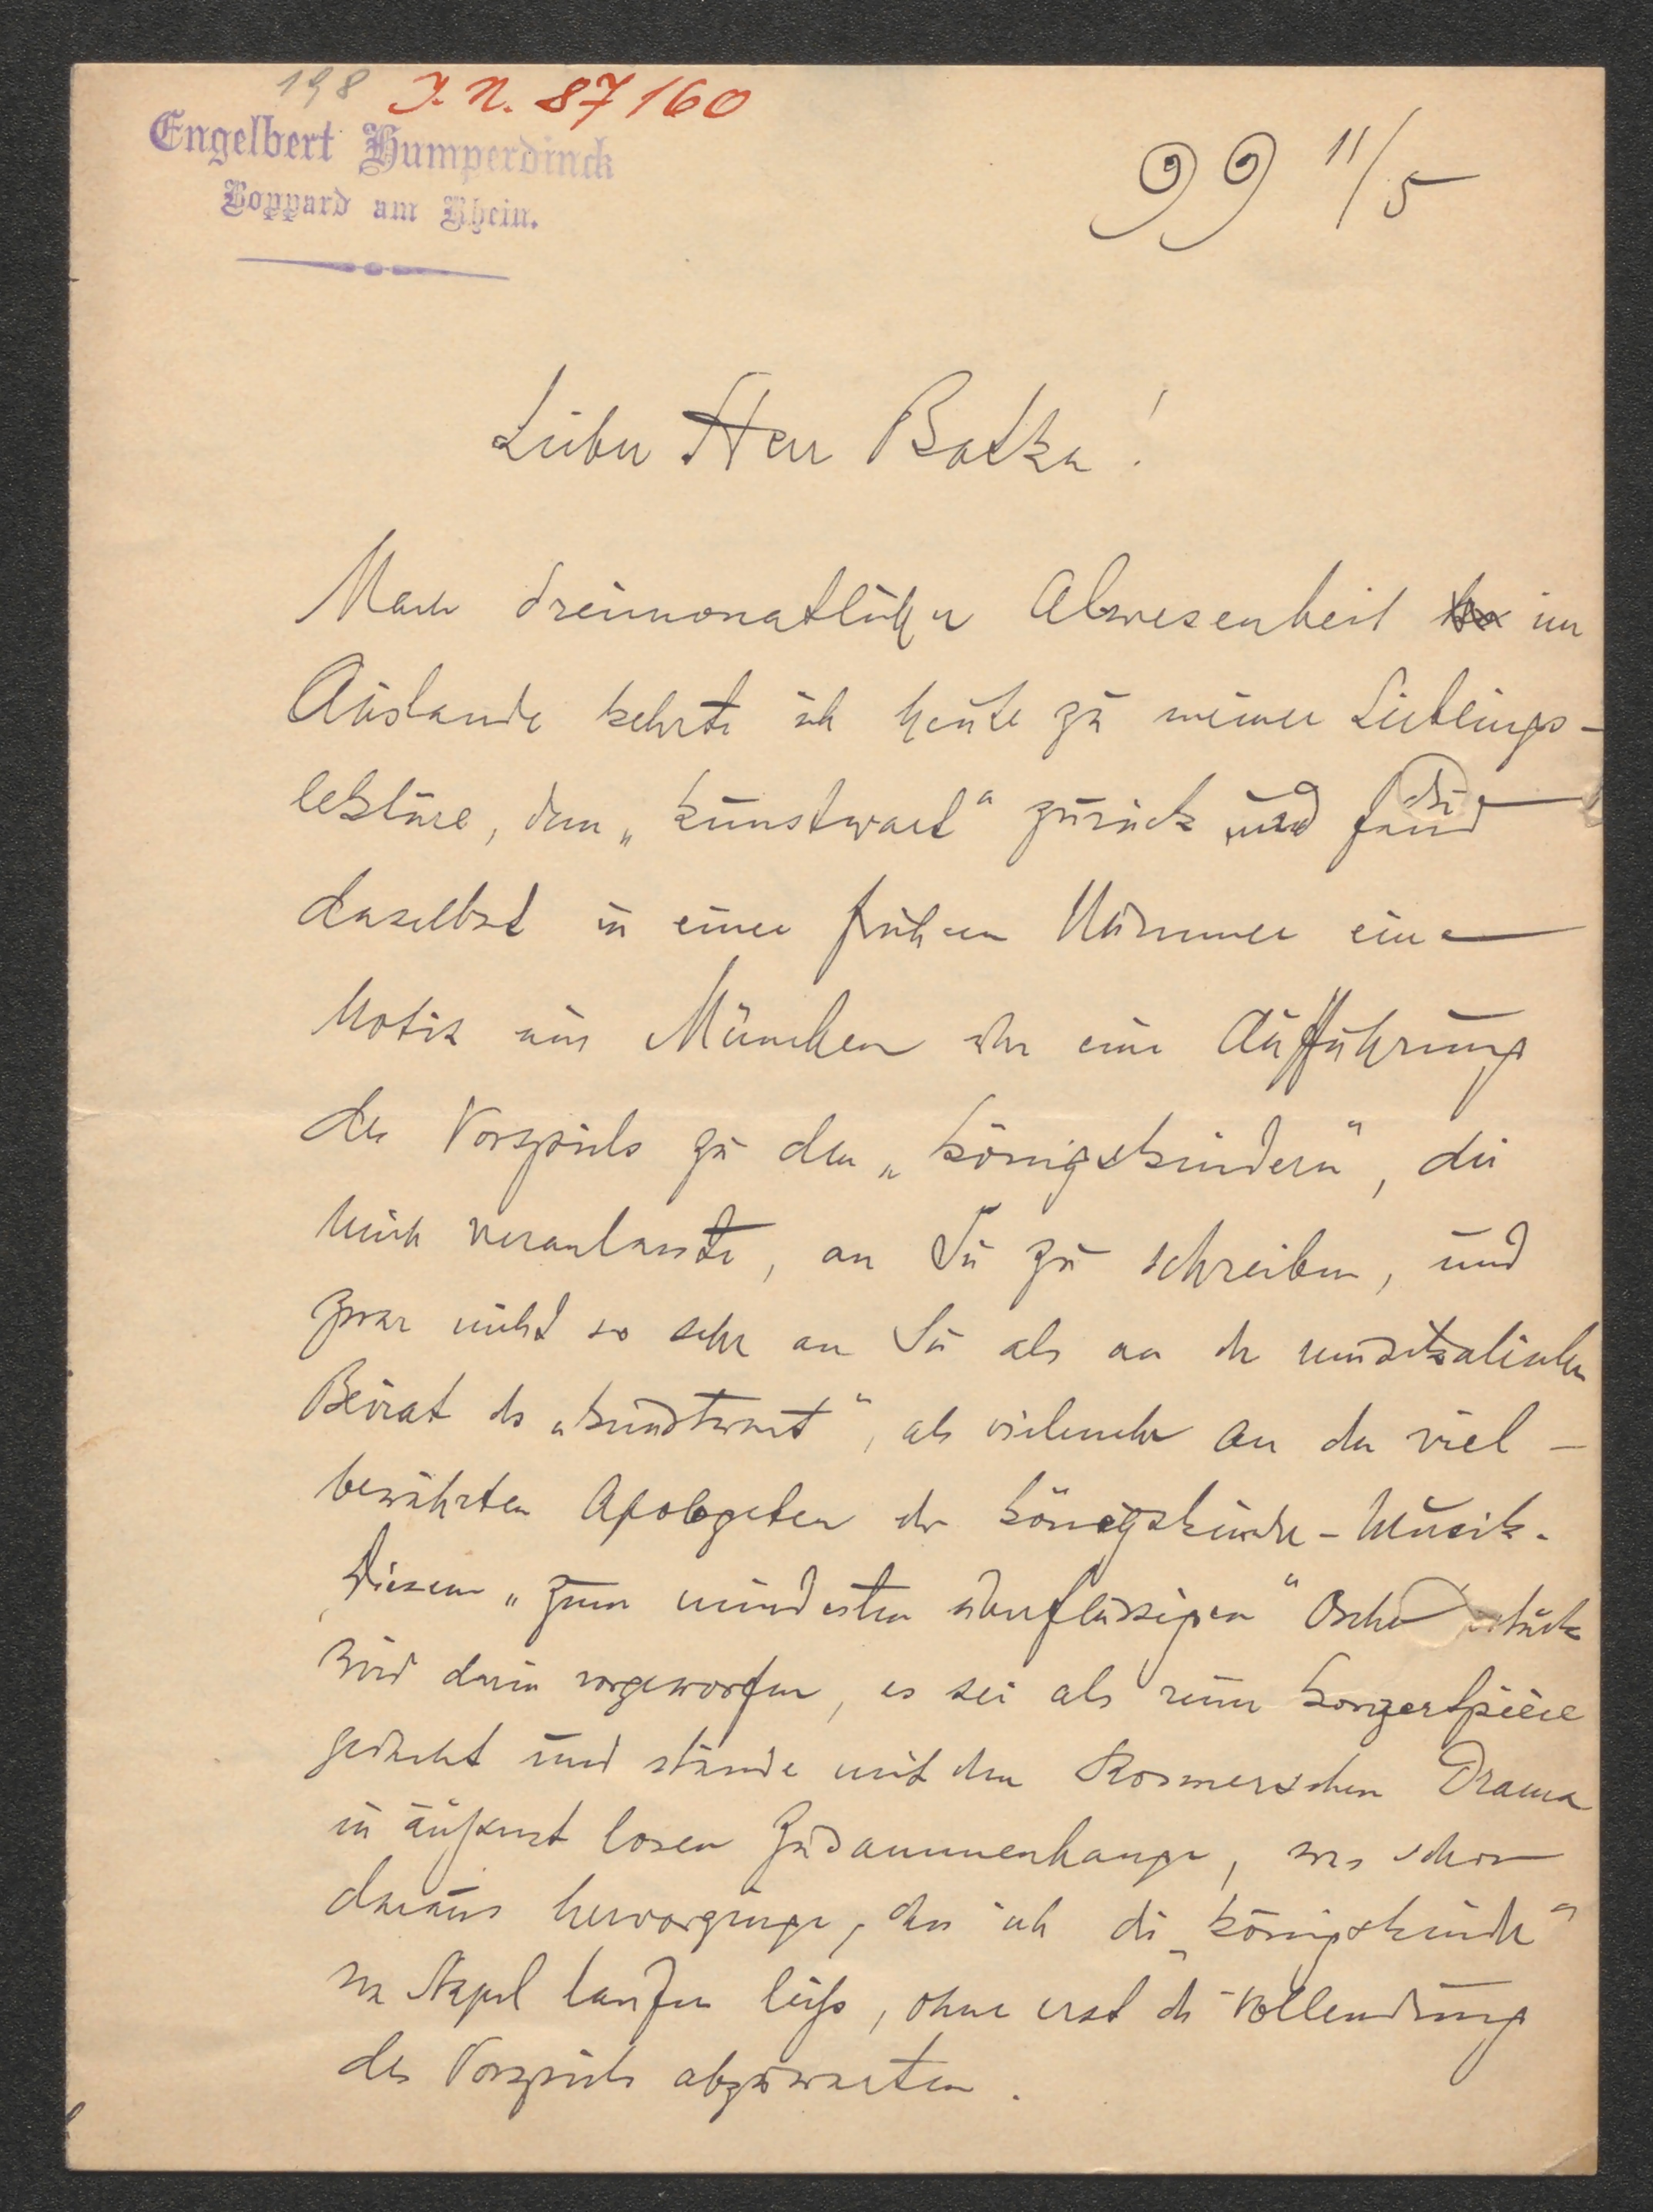 198 I. N. 87160
Engelbert Humperdinck
Boppard am Rhein.
99 11/5
Lieber Herr Batka!
Nach dreimonatlicher Abwesenheit im
Auslande kehrte ich heute zu meiner Lieblings-
lektüre, dem „Kunstwart“ zurück und fand
daselbst in einer frühern Nummer eine
Notiz aus München über eine Aufführung
des Vorspiels zu den „Königskindern“, die
mich veranlasste, an Sie zu schreiben, und
zwar nicht so sehr an Sie als an den musikalischen
Beirat des „Kunstwart“, als vielmehr an den viel-
bewährten Apologeten der Königskinder-Musik.
Diesem „zum mindesten überflüssigen“ Orchesterstück
wird darin vorgeworfen, es sei als reine Konzertpièce
gedacht und stände mit dem Rosmerschen Drama
in äußerst losem Zusammenhange, was schon
daraus hervorginge, dass ich die „Königskinder“
vom Stapel laufen ließ, ohne erst die Vollendung
des Vorspiels abzuwarten.